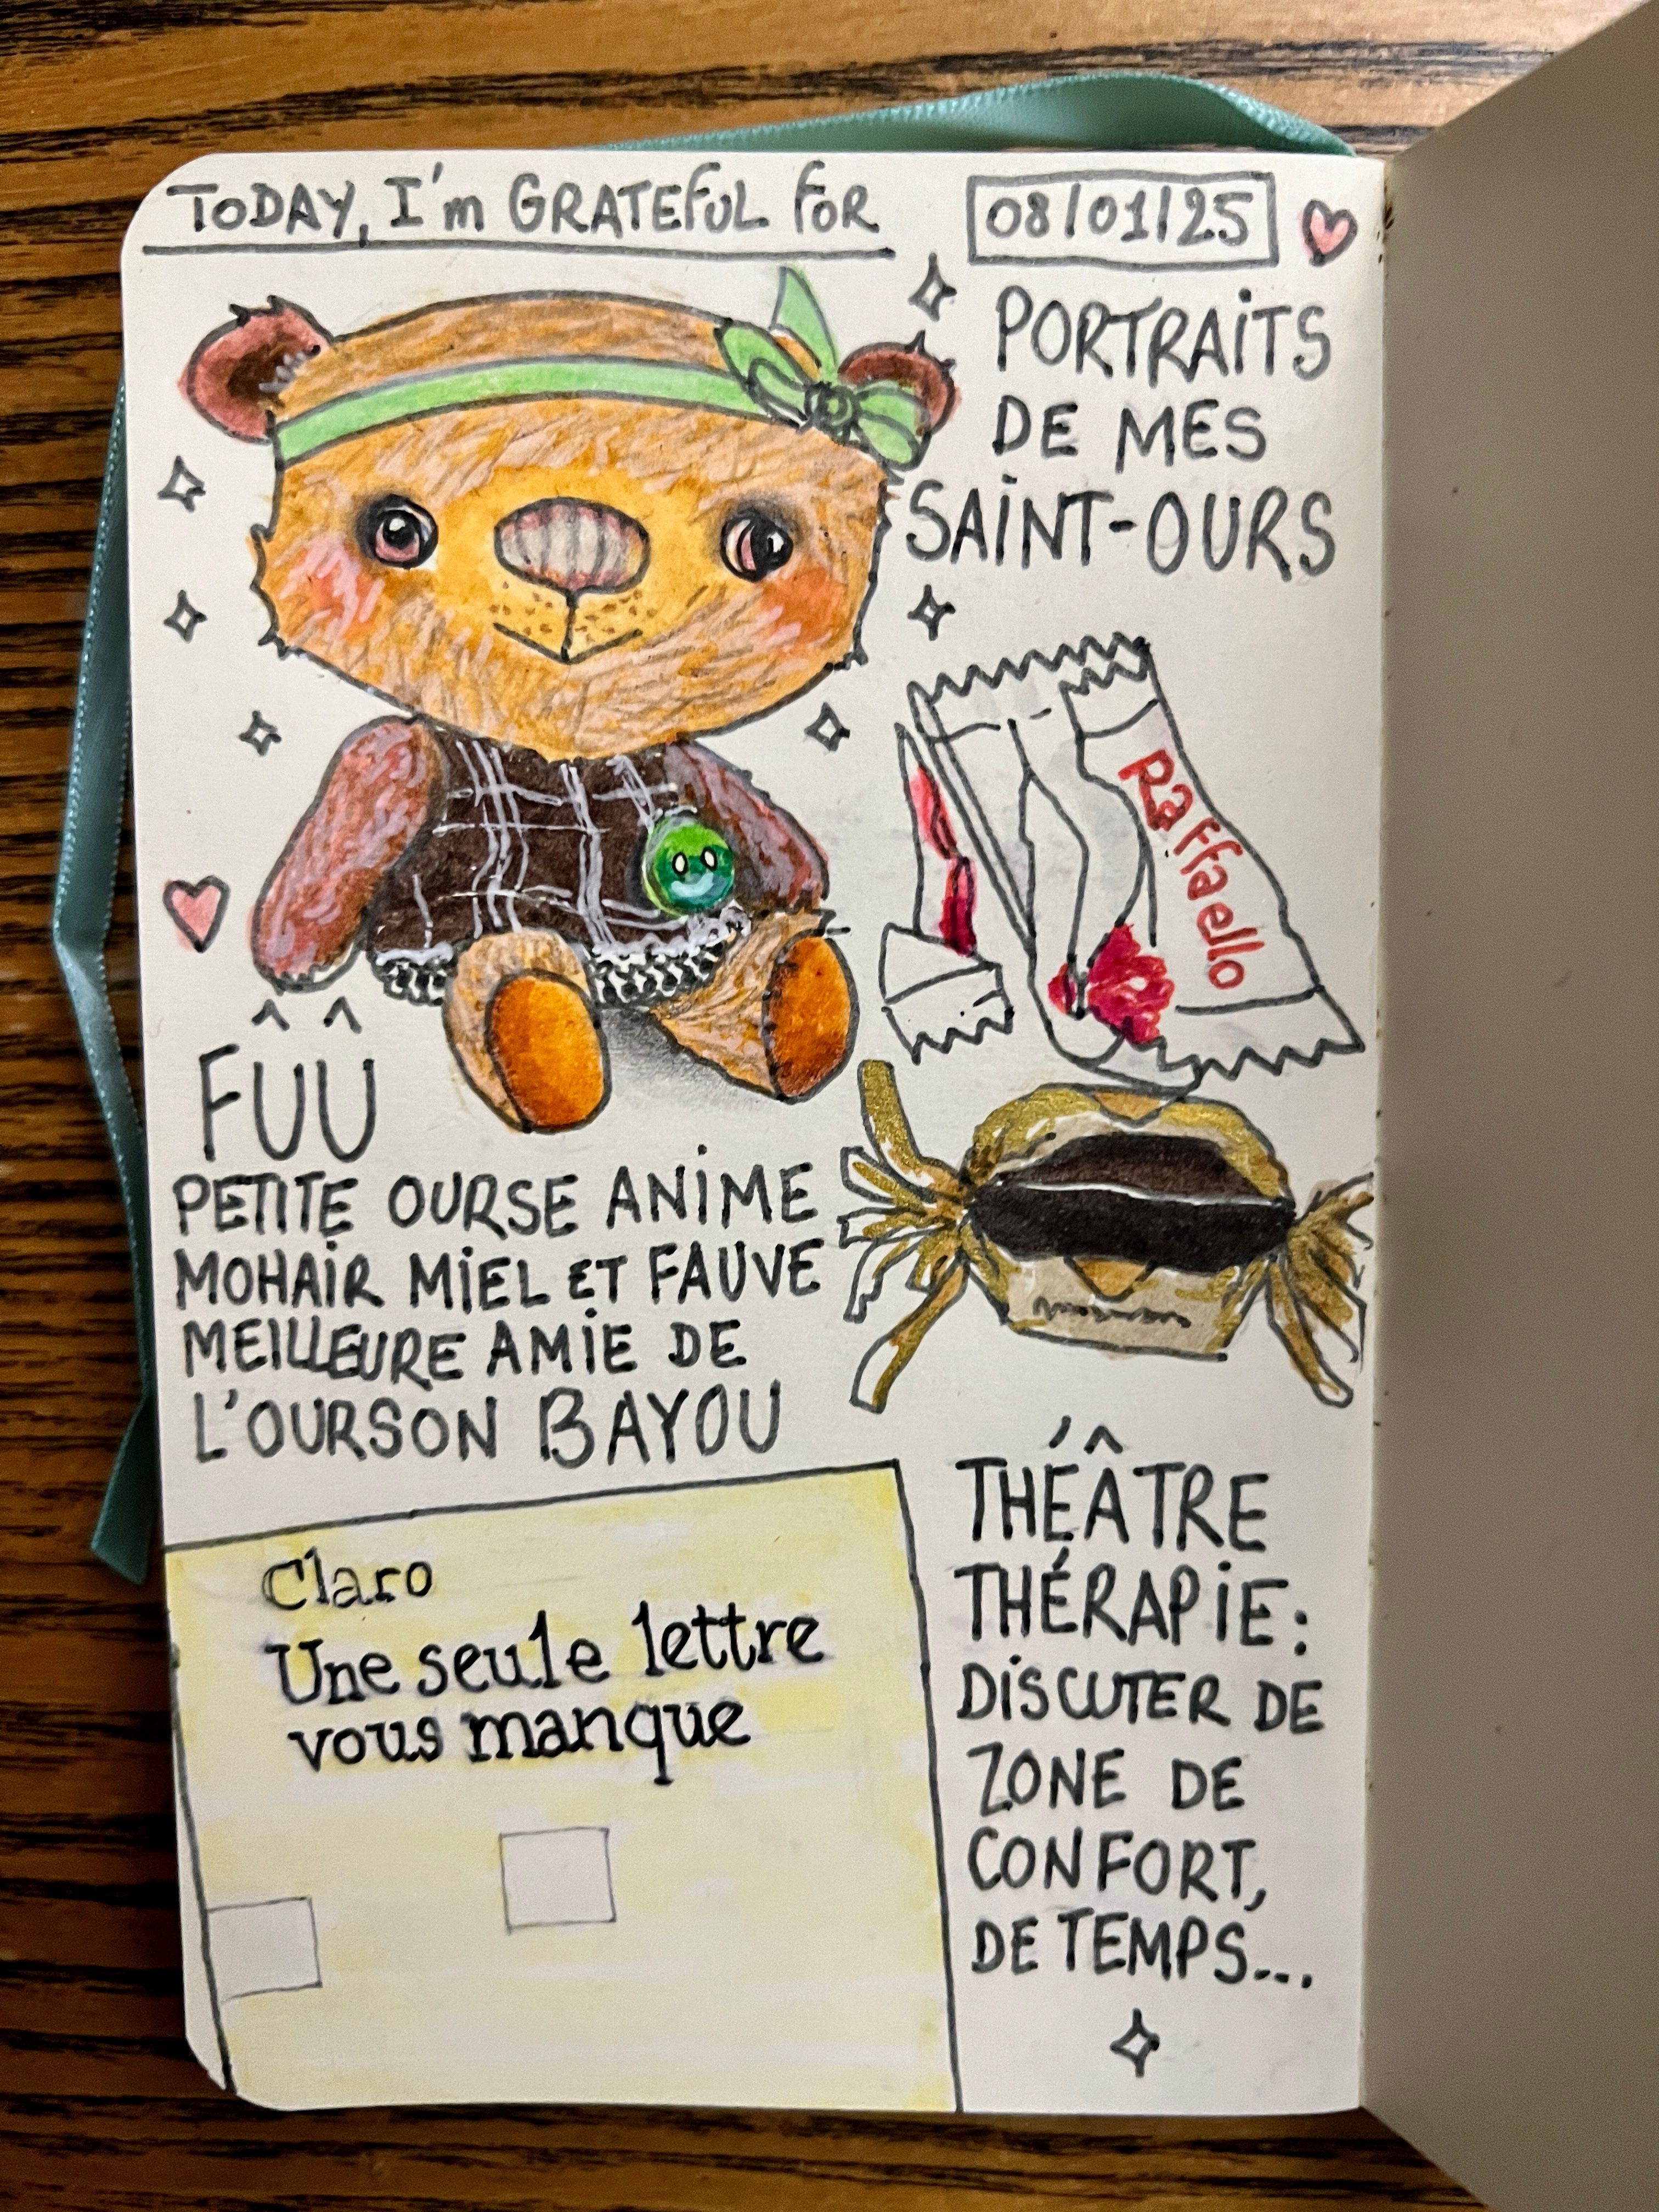 TODAY, I'm GRATEFUL FOR
08/01/25
PORTRAITS
DE MES
SAINT-OURS
Raffaello
FÛÛ
PETITE OURSE ANIME
MOHAIR MIEL ET FAUVE
MEILLEURE AMIE DE
L'OURSON BAYOU
Claro
Une seule lettre
vous manque
THÉÂTRE
THÉRAPIE:
DISCUTER DE
ZONE DE
CONFORT,
DE TEMPS...